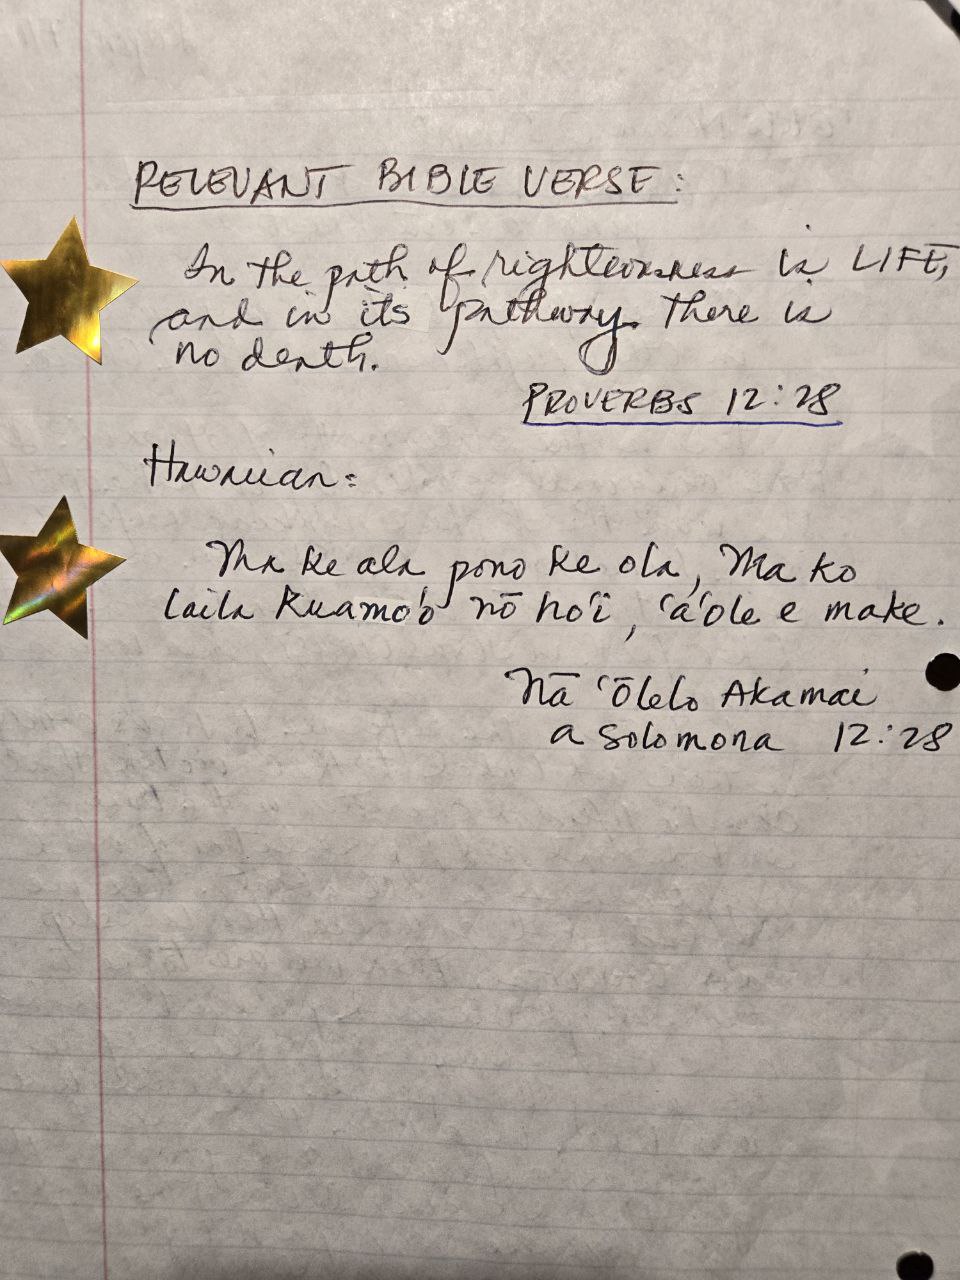 RELEVANT BIBLE VERSE:
In the path of righteousness is LIFE,
and in its pathway there is
no death.
PROVERBS 12:28
Hawaiian:
Ma ke ala pono ke ola, Ma ko
laila kuamoʻo nō hoʻi, ʻaʻole e make.
Nā ʻŌlelo Akamai
a Solomona 12:28